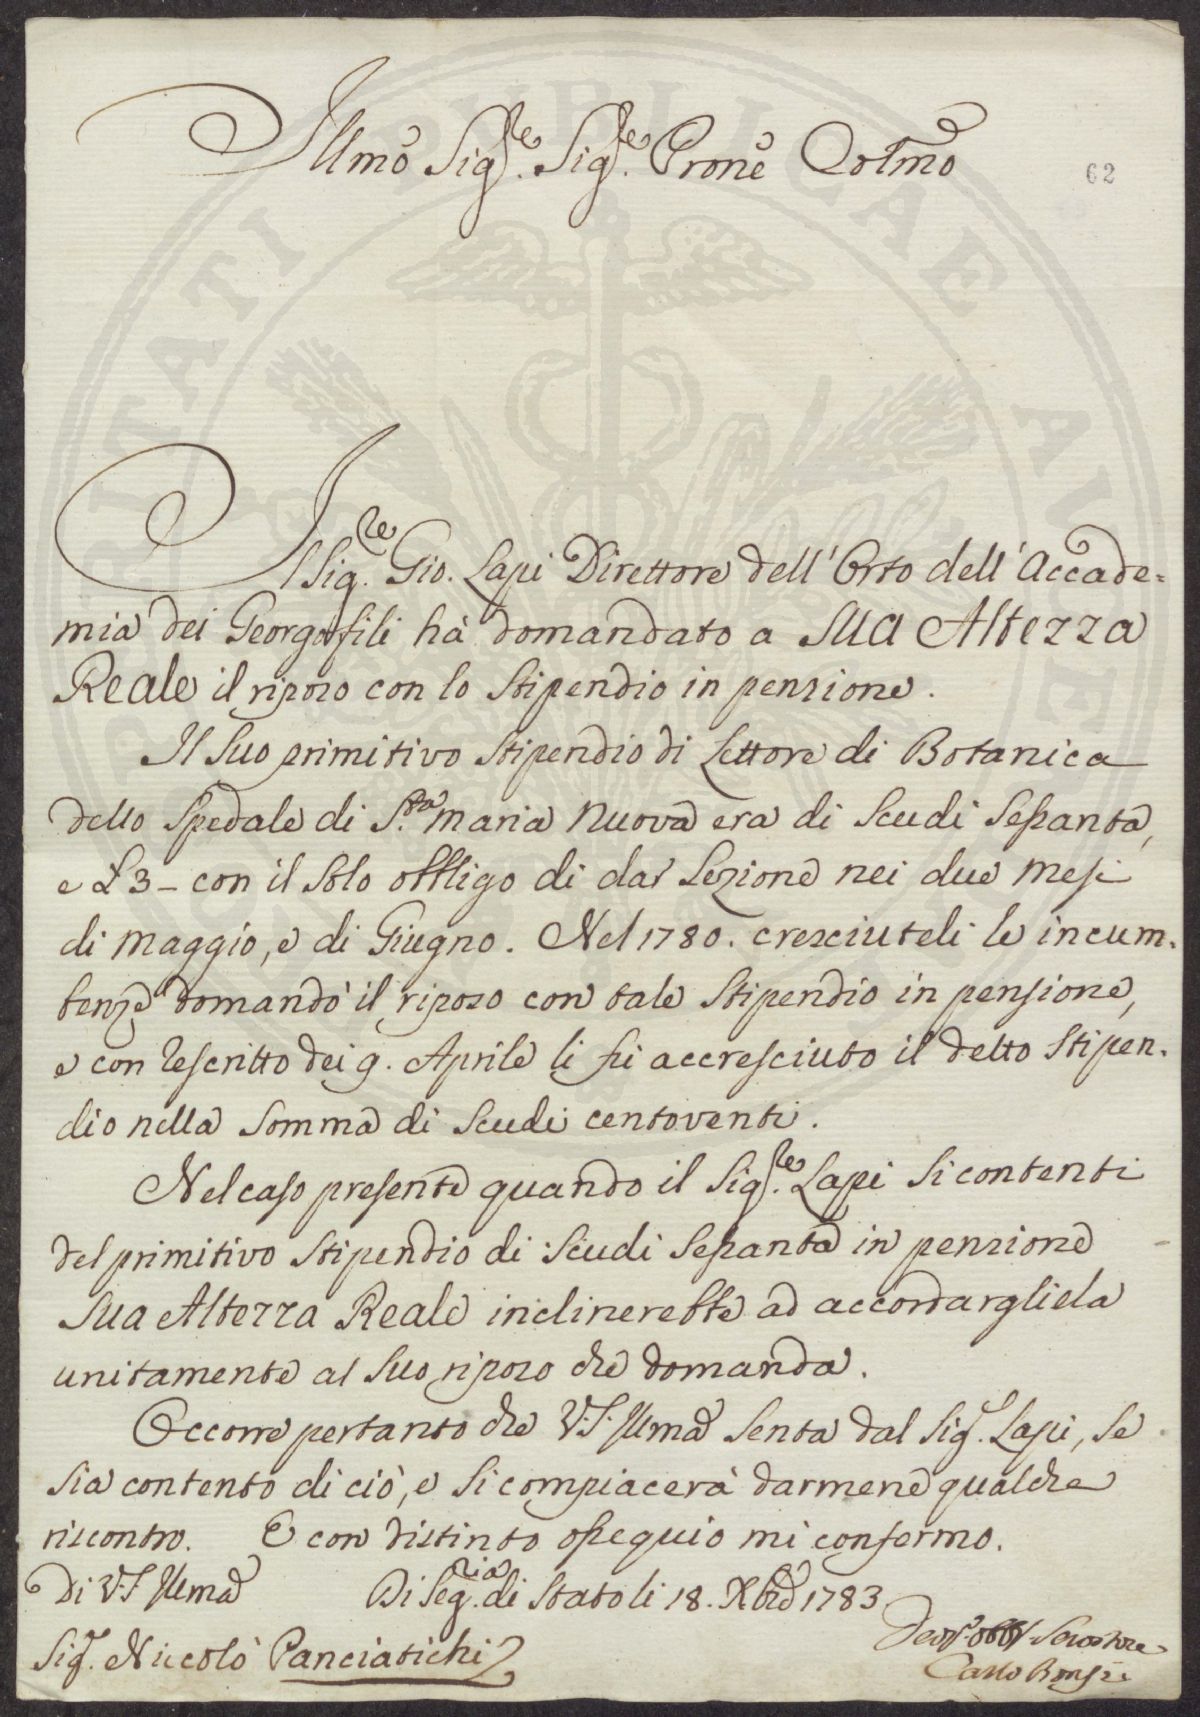 Illmo Sigre. Sigre. Prone Colmo
62
Il Sigre. Gio. Lapi Direttore dell'Orto dell'Accade=
mia dei Georgofili hà domandato a Sua Altezza
Reale il riposo con lo Stipendio in pensione.
Il Suo primitivo Stipendio di Lettore di Botanica
dello Spedale di S.ta Maria Nuova era di Scudi Sessanta,
e £ 3 - con il Solo obbligo di dar Lezione nei due Mesi
di Maggio, e di Giugno. Nel 1780. cresciuteli le incum-
benze domandò il riposo con tale Stipendio in pensione,
e con Rescritto dei 9. Aprile li fù accresciuto il detto Stipen-
dio nella Somma di Scudi centoventi.
Nel caso presente quando il Sigre. Lapi Si contenti
del primitivo Stipendio di Scudi Sessanta in pensione
Sua Altezza Reale inclinerebbe ad accordargliela
unitamente al Suo riposo che domanda.
Occorre pertanto che V.S. Illma Senta dal Sigr. Lapi, Se
Sia contento di ciò, e Si compiacerà darmene qualche
riscontro. E con distinto ossequio mi confermo.
Di V.S. Illma
Di Segria. di Stato li 18. Xbre 1783
Sigr. Niccolò Panciatichi
Carlo Bonsi
PUBLICAE